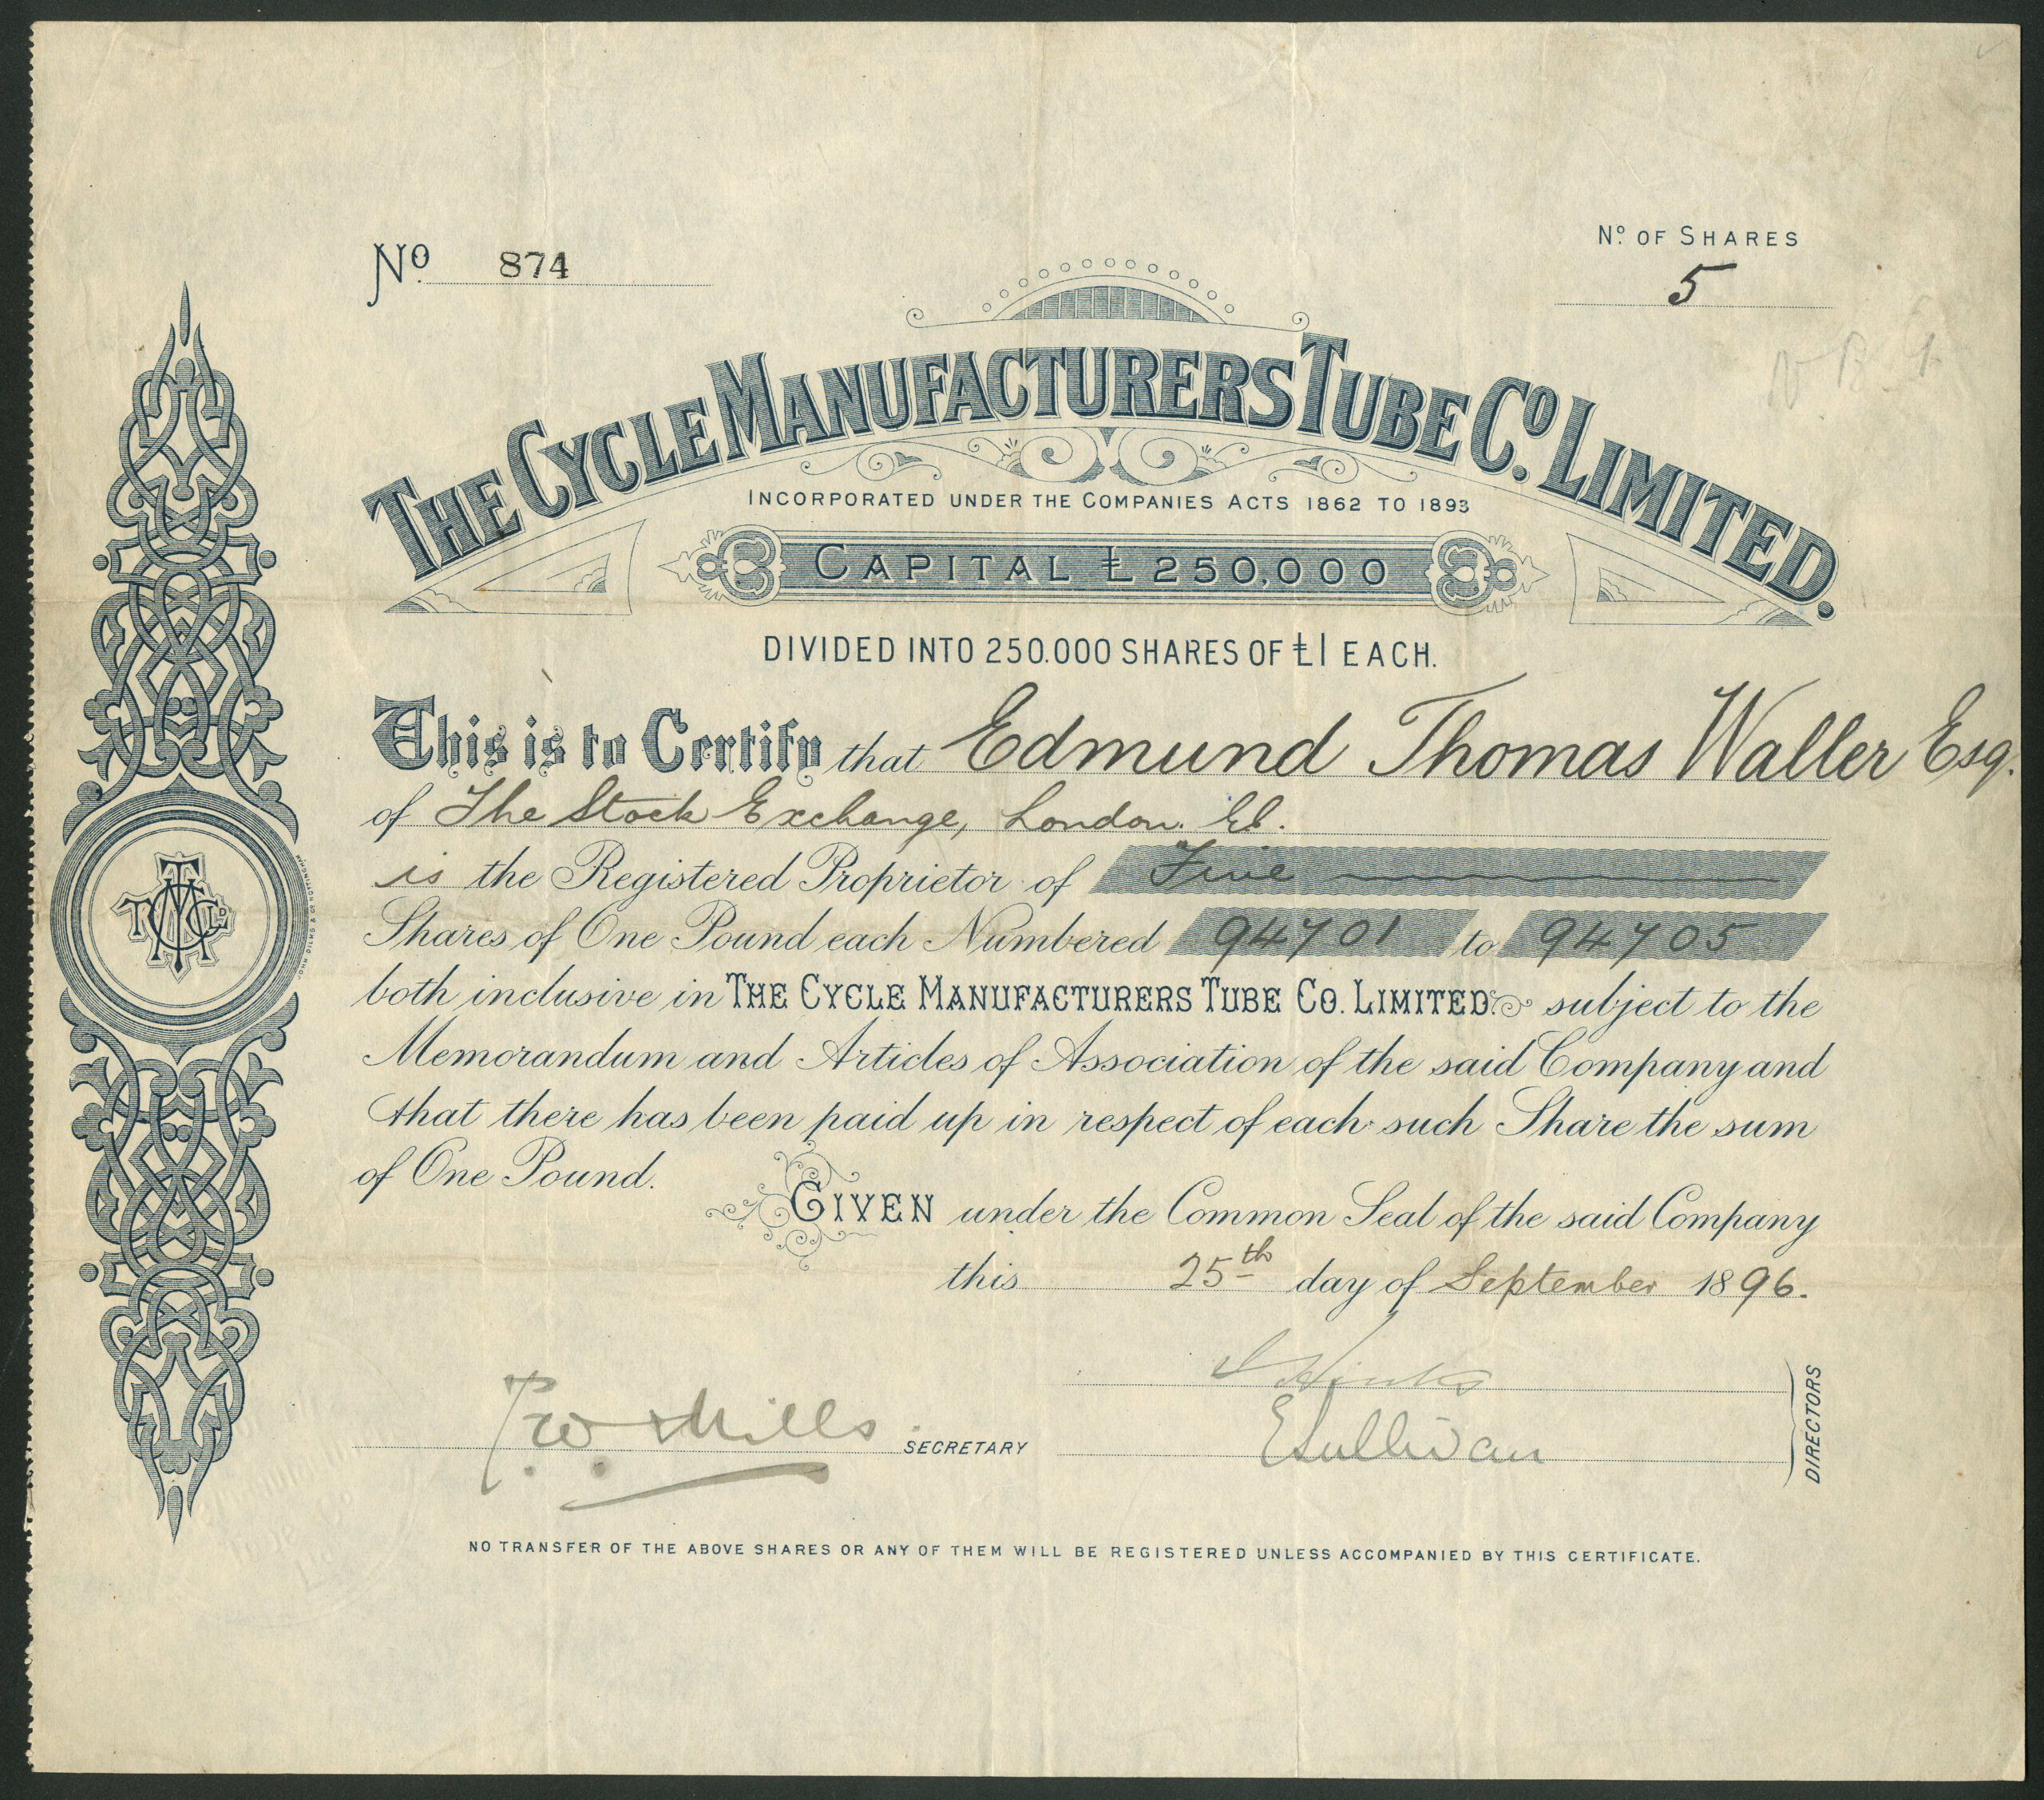 No. 874
No. OF SHARES
5
N. B. G
THE CYCLE MANUFACTURERS TUBE Co. LIMITED.
INCORPORATED UNDER THE COMPANIES ACTS 1862 TO 1893
CAPITAL £250,000
DIVIDED INTO 250.000 SHARES OF £1 EACH.
This is to Certify that Edmund Thomas Waller Esq.
of The Stock Exchange, London. E.C.
is the Registered Proprietor of Five
Shares of One Pound each Numbered 94701 to 94705
both inclusive in THE CYCLE MANUFACTURERS TUBE Co. LIMITED. subject to the
Memorandum and Articles of Association of the said Company and
that there has been paid up in respect of each such Share the sum
of One Pound.
GIVEN under the Common Seal of the said Company
this 25th day of September 1896.
Hinks
T. W. Mills SECRETARY
E Sullivan
DIRECTORS
NO TRANSFER OF THE ABOVE SHARES OR ANY OF THEM WILL BE REGISTERED UNLESS ACCOMPANIED BY THIS CERTIFICATE.